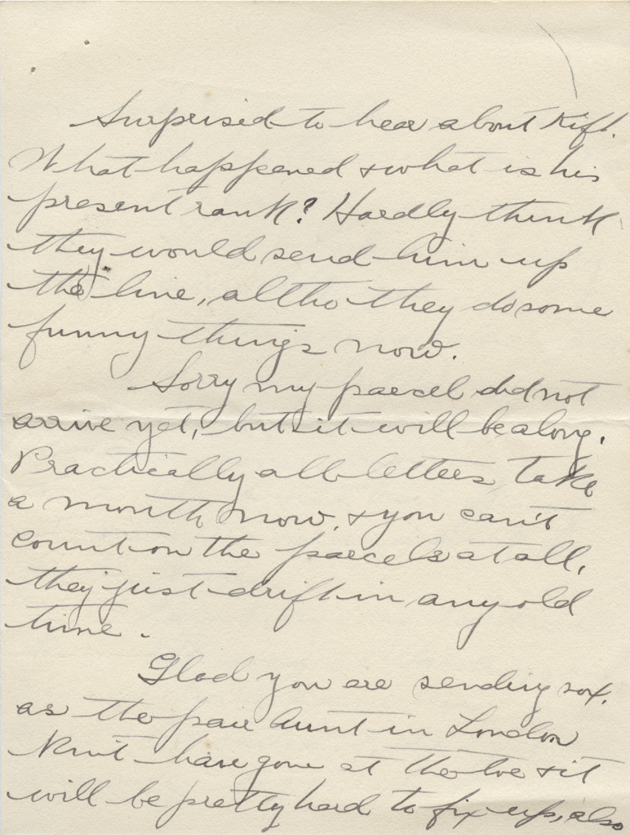 Surprised to hear about Kift.
What happened & what is his
present rank? Hardly think
they would send him up
the line, altho they do some
funny things now.
Sorry my parcel did not
arrive yet, but it will be along.
Practically all letters take
a month now, & you can't
count on the parcels at all,
they just drift in any old
time.
Glad you are sending sox,
as the pair Aunt in London
Knit have gone at the toe & it
will be pretty hard to fix up, also